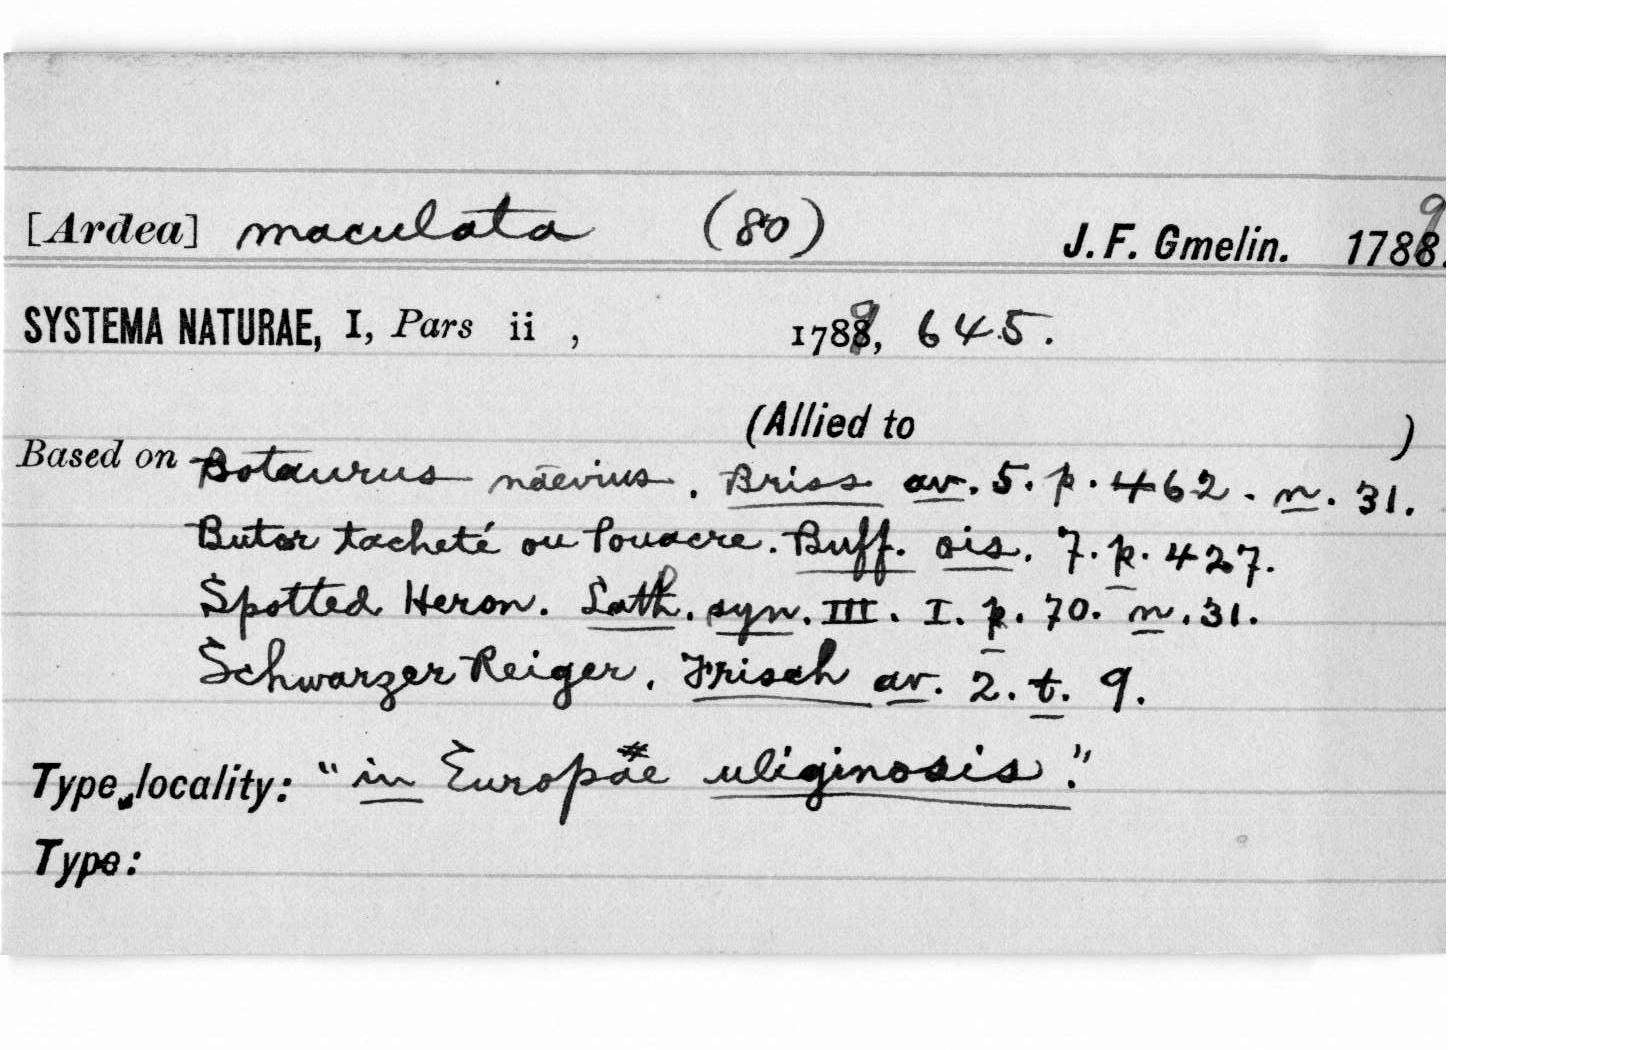 [Ardea] maculata (80) J. F. Gmelin. 1789.
SYSTEMA NATURAE, I, Pars ii , 1789, 645.
(Allied to )
Based on Botaurus naevius. Briss av. 5. p. 462. n. 31.
Butor tacheté ou Pouacre. Buff. ois. 7. p. 427.
Spotted Heron. Lath. syn. III. I. p. 70. n. 31.
Schwarzer Reiger. Frisch av. 2. t. 9.
Type locality: "in Europae uliginosis."
Type: